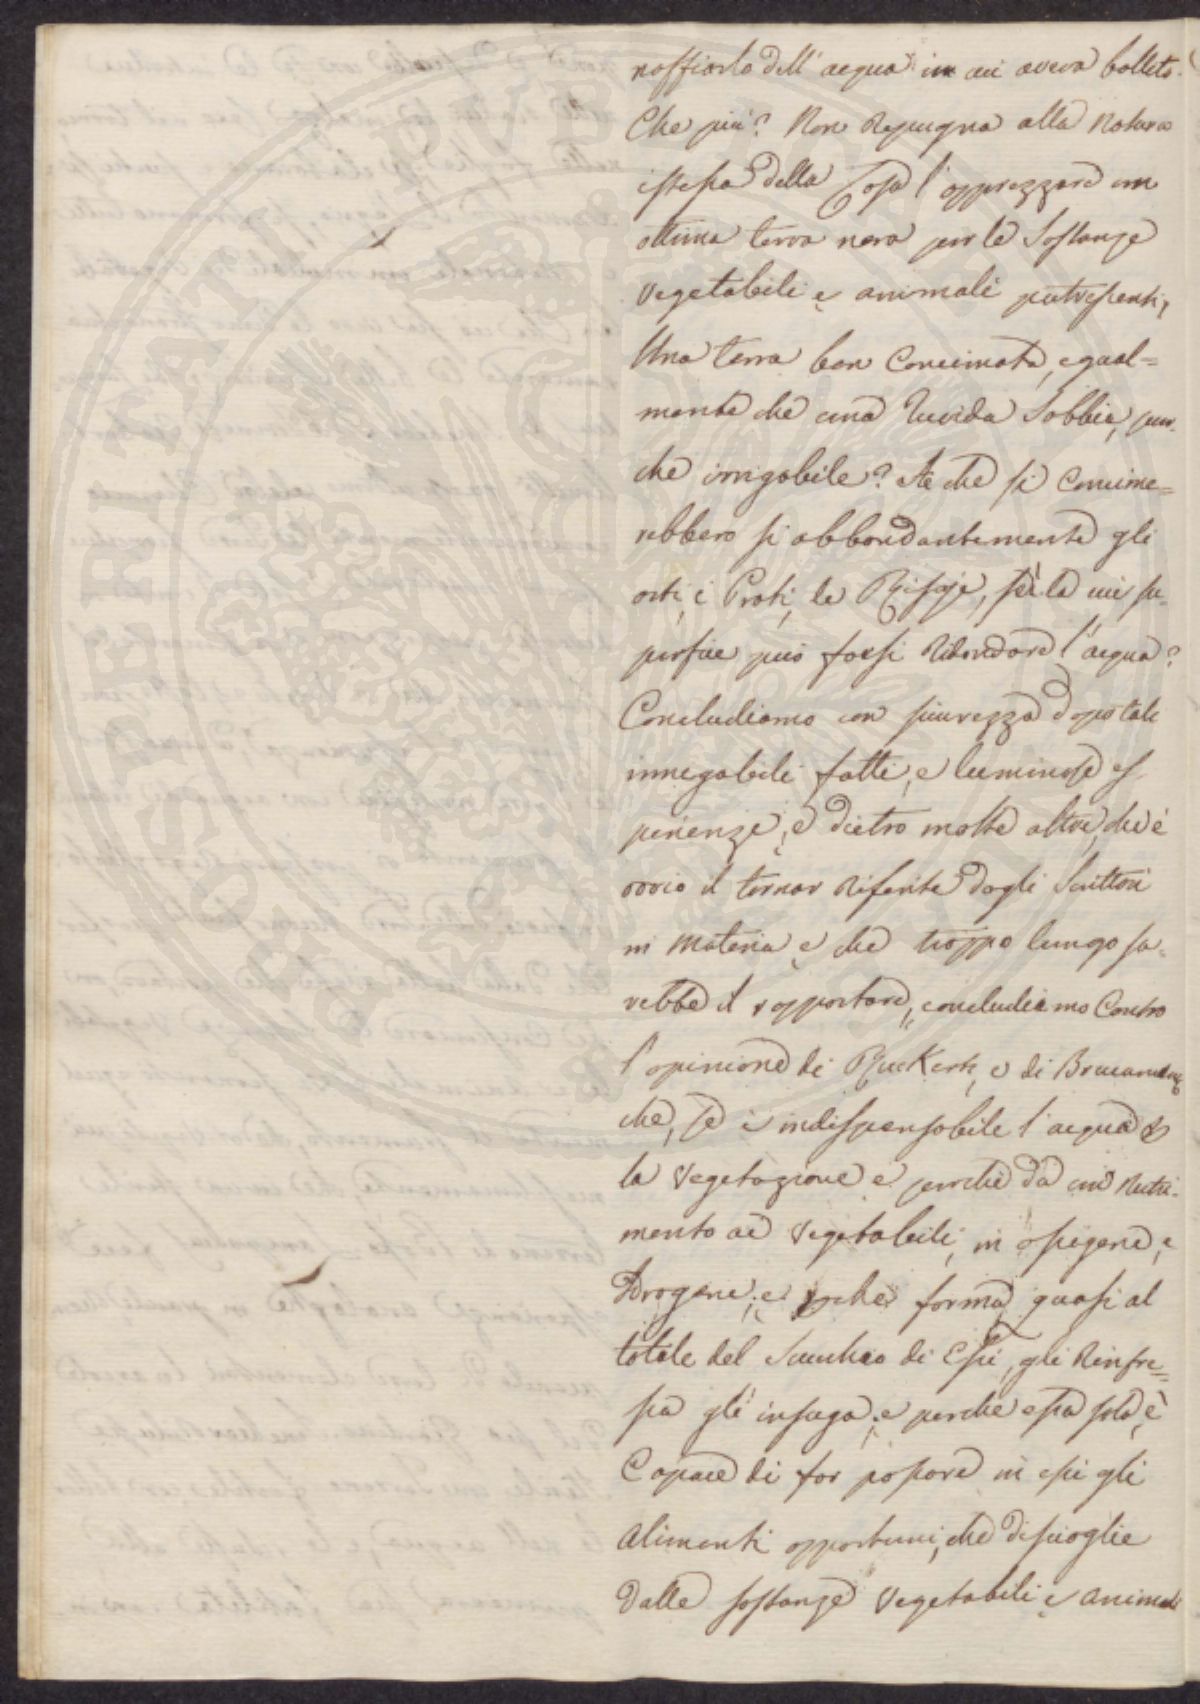 naffiarla dell' acqua in cui aveva bollito.
Che più? Non Repugna alla Natura
istessa della Cosa l'apprezzare una
ottima terra nera per le Sostanze
Vegetabili e animali putrescenti,
Una terra ben Concimata, egual=
mente che una Ruvida Sabbia, pur-
che irrigabile? A che si Concime=
rebbero si abbondantemente gli
orti, i Prati, le Risaje, se la cui su-
perficie può farsi Ridondare l'acqua?
Concludiamo con sicurezza dopo tali
innegabili fatti, e luminose es-
perienze, e dietro molte altre, che è
ovvio il trovar Riferite dagli Scrittori
in Materia e che troppo lungo sa-
rebbe il rapportare, concludiamo Contro
l'opinione di RucKert, e di
che, se è indispensabile l'acqua
la Vegetazione è perchè dà un Nutri-
mento ai Vegetabili, in ossigene, e
Idrogene; e perche forma quasi al
totale del Succhio di Essi, gli Rinfre=
sca gli infuga; e perche essa sola è
Capace di far passare in essi gli
Alimenti opportuni, che discioglie
Dalle sostanze Vegetabili e animali
POSTERITATI PVBLICE